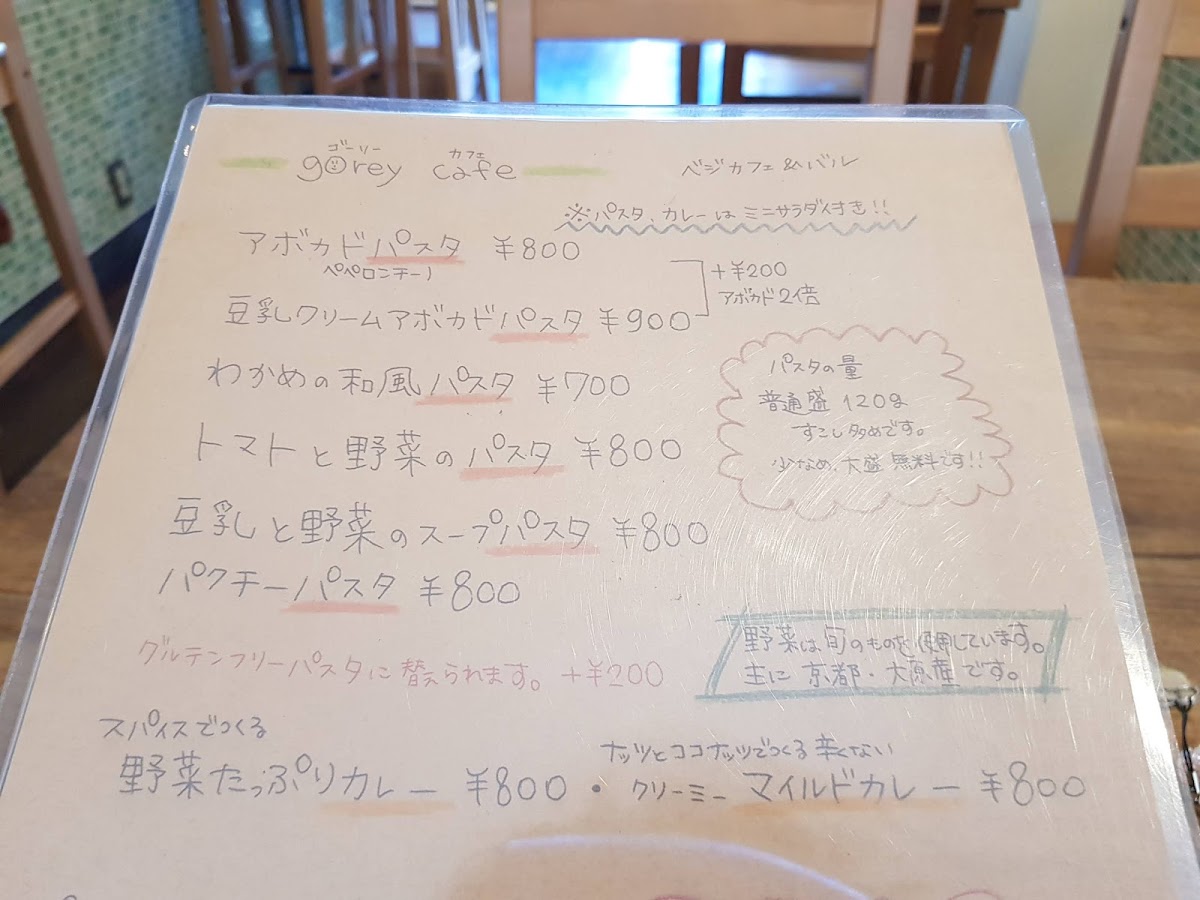 ゴーリー カフェ
gorey cafe
ベジカフェ&バル
※パスタ、カレーは ミニサラダ付き!!
アボカドパスタ ¥800
ペペロンチーノ
豆乳クリームアボカドパスタ ¥900
+¥200
アボカド2倍
わかめの和風パスタ ¥700
トマトと野菜のパスタ ¥800
豆乳と野菜のスープパスタ ¥800
パクチーパスタ ¥800
パスタの量
普通盛 120g
すこし多めです。
少なめ、大盛 無料です!!
グルテンフリーパスタに替えられます。 +¥200
野菜は旬のものを使用しています。
主に 京都・大原産です。
スパイスでつくる
野菜たっぷりカレー ¥800
・
ナッツとココナッツでつくる 辛くない
クリーミー マイルドカレー ¥800